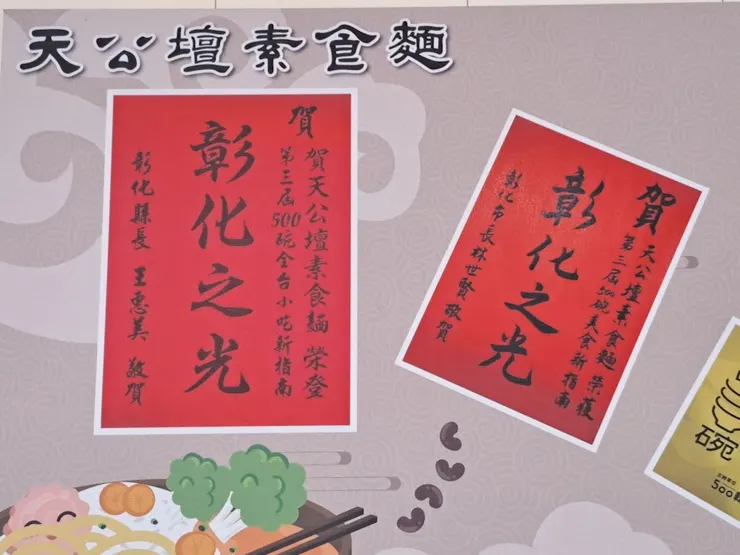 天公壇素食麵
賀
賀天公壇素食麵榮登
第三屆500碗全台小吃新指南
彰化之光
彰化縣長 王惠美 敬賀
賀
天公壇素食麵榮獲
第三屆500碗美食新指南
彰化之光
彰化市長林世賢敬賀
碗